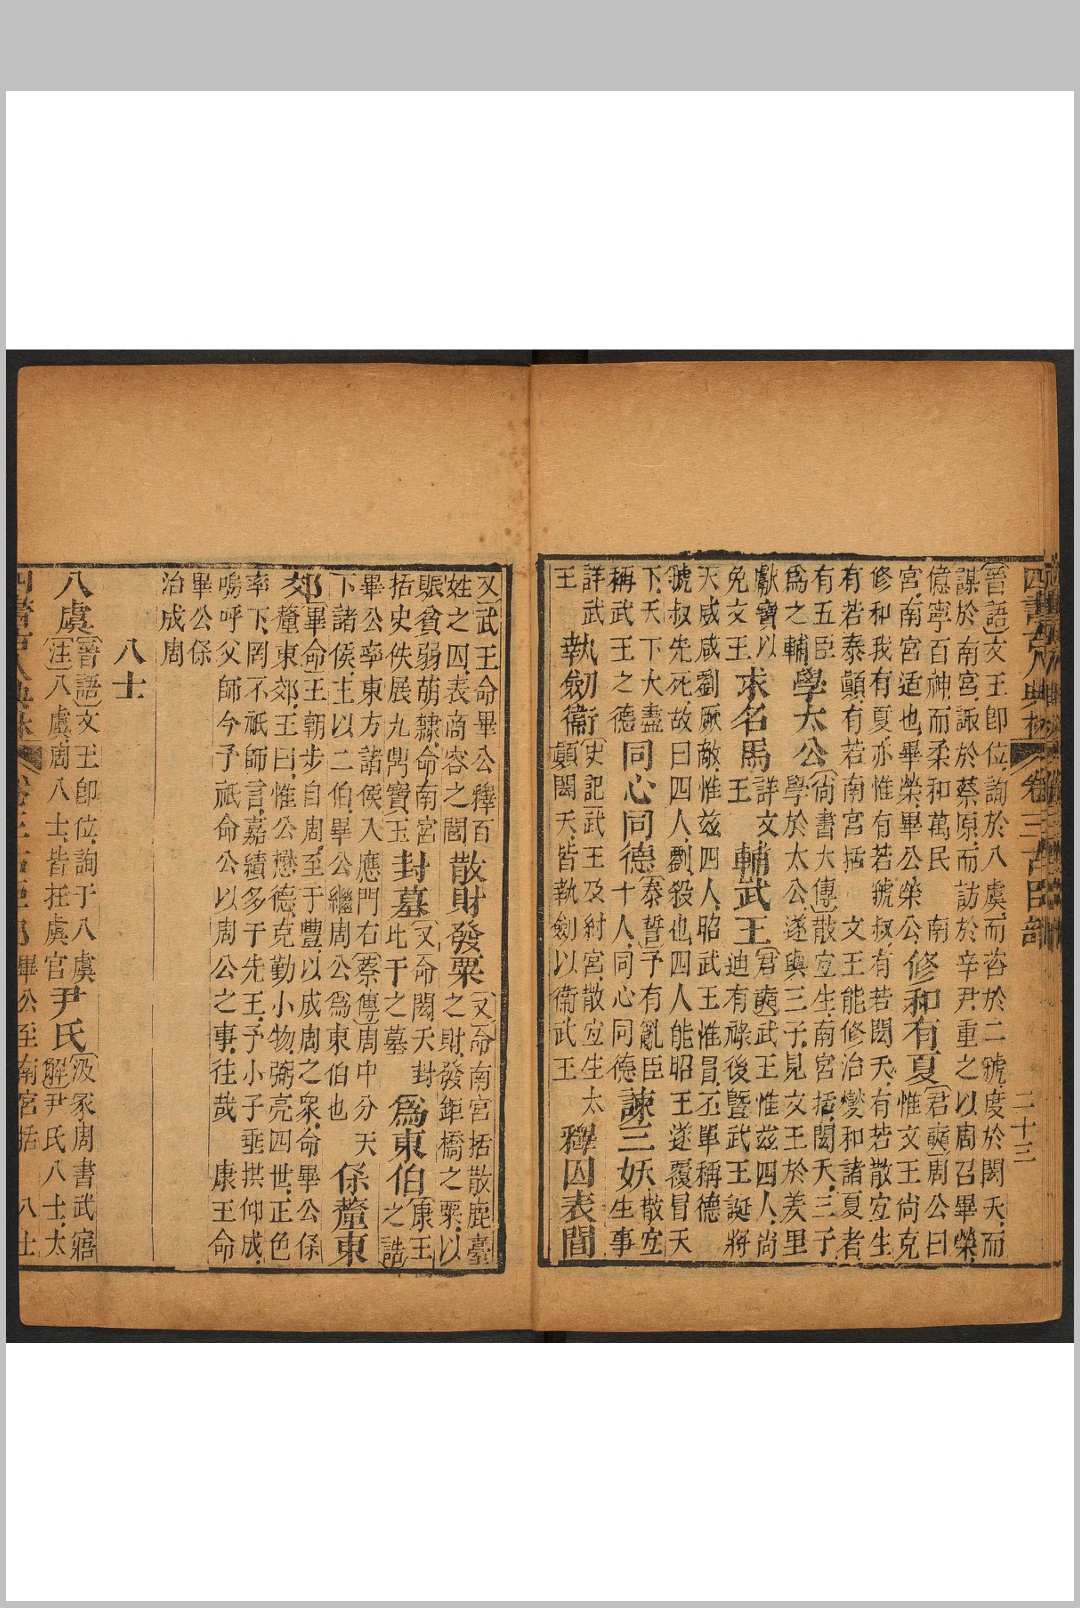 四書古人典林 卷三 古臣部 二十三
晉語文王卽位詢於八虞而咨於二虢度於閎夭而
謀於南宮諏於蔡原而訪於辛尹重之以周召畢榮
億寧百神而柔和萬民 南
宮南宮适也畢榮畢公榮公 修和有夏 君奭周公曰
惟文王尚克
修和我有夏亦惟有若虢叔有若閎夭有若散宜生
有若泰顛有若南宮括 文王能修治爕和諸夏者
有五臣
爲之輔 學太公 尚書大傳散宜生南宮括閎夭三子
學於太公遂與三子見文王於羑里
獻寶以
免文王 求名馬 詳文
王 輔武王 君奭武王惟兹四人尚
迪有祿後暨武王誕將
天威咸劉厥敵惟兹四人昭武王惟冒丕單稱德
虢叔先死故曰四人劉殺也四人能昭王遂覆冒天
下天下大盡
稱武王之德 同心同德 泰誓予有亂臣
十人同心同德 諫三妖 散宜
生事
詳武
王 執劍衛 史記武王及紂宮散宜生太
顛閎夭皆執劍以衛武王 釋囚表閭
又武王命畢公釋百
姓之囚表商容之閭 散財發粟 又命南宮括散鹿臺
之財發鉅橋之粟以
賑貧弱萌隸命南宮
括史佚展九鼎寶玉 封墓 又命閎夭封
比干之墓 爲東伯 康王
之誥
畢公率東方諸侯入應門右蔡傳周中分天
下諸侯主以二伯畢公繼周公爲東伯也 保釐東
郊 畢命王朝步自周至于豐以成周之衆命畢公保
釐東郊王曰惟公懋德克勤小物弼亮四世正色
率下罔不祗師言嘉績多于先王予小子垂拱仰成
嗚呼父師今予祗命公以周公之事往哉 康王命
畢公保
治成周
八士
八虞 晉語文王卽位詢于八虞
注八虞周八士皆在虞官 尹氏 汲冢周書武寤
解尹氏八士太